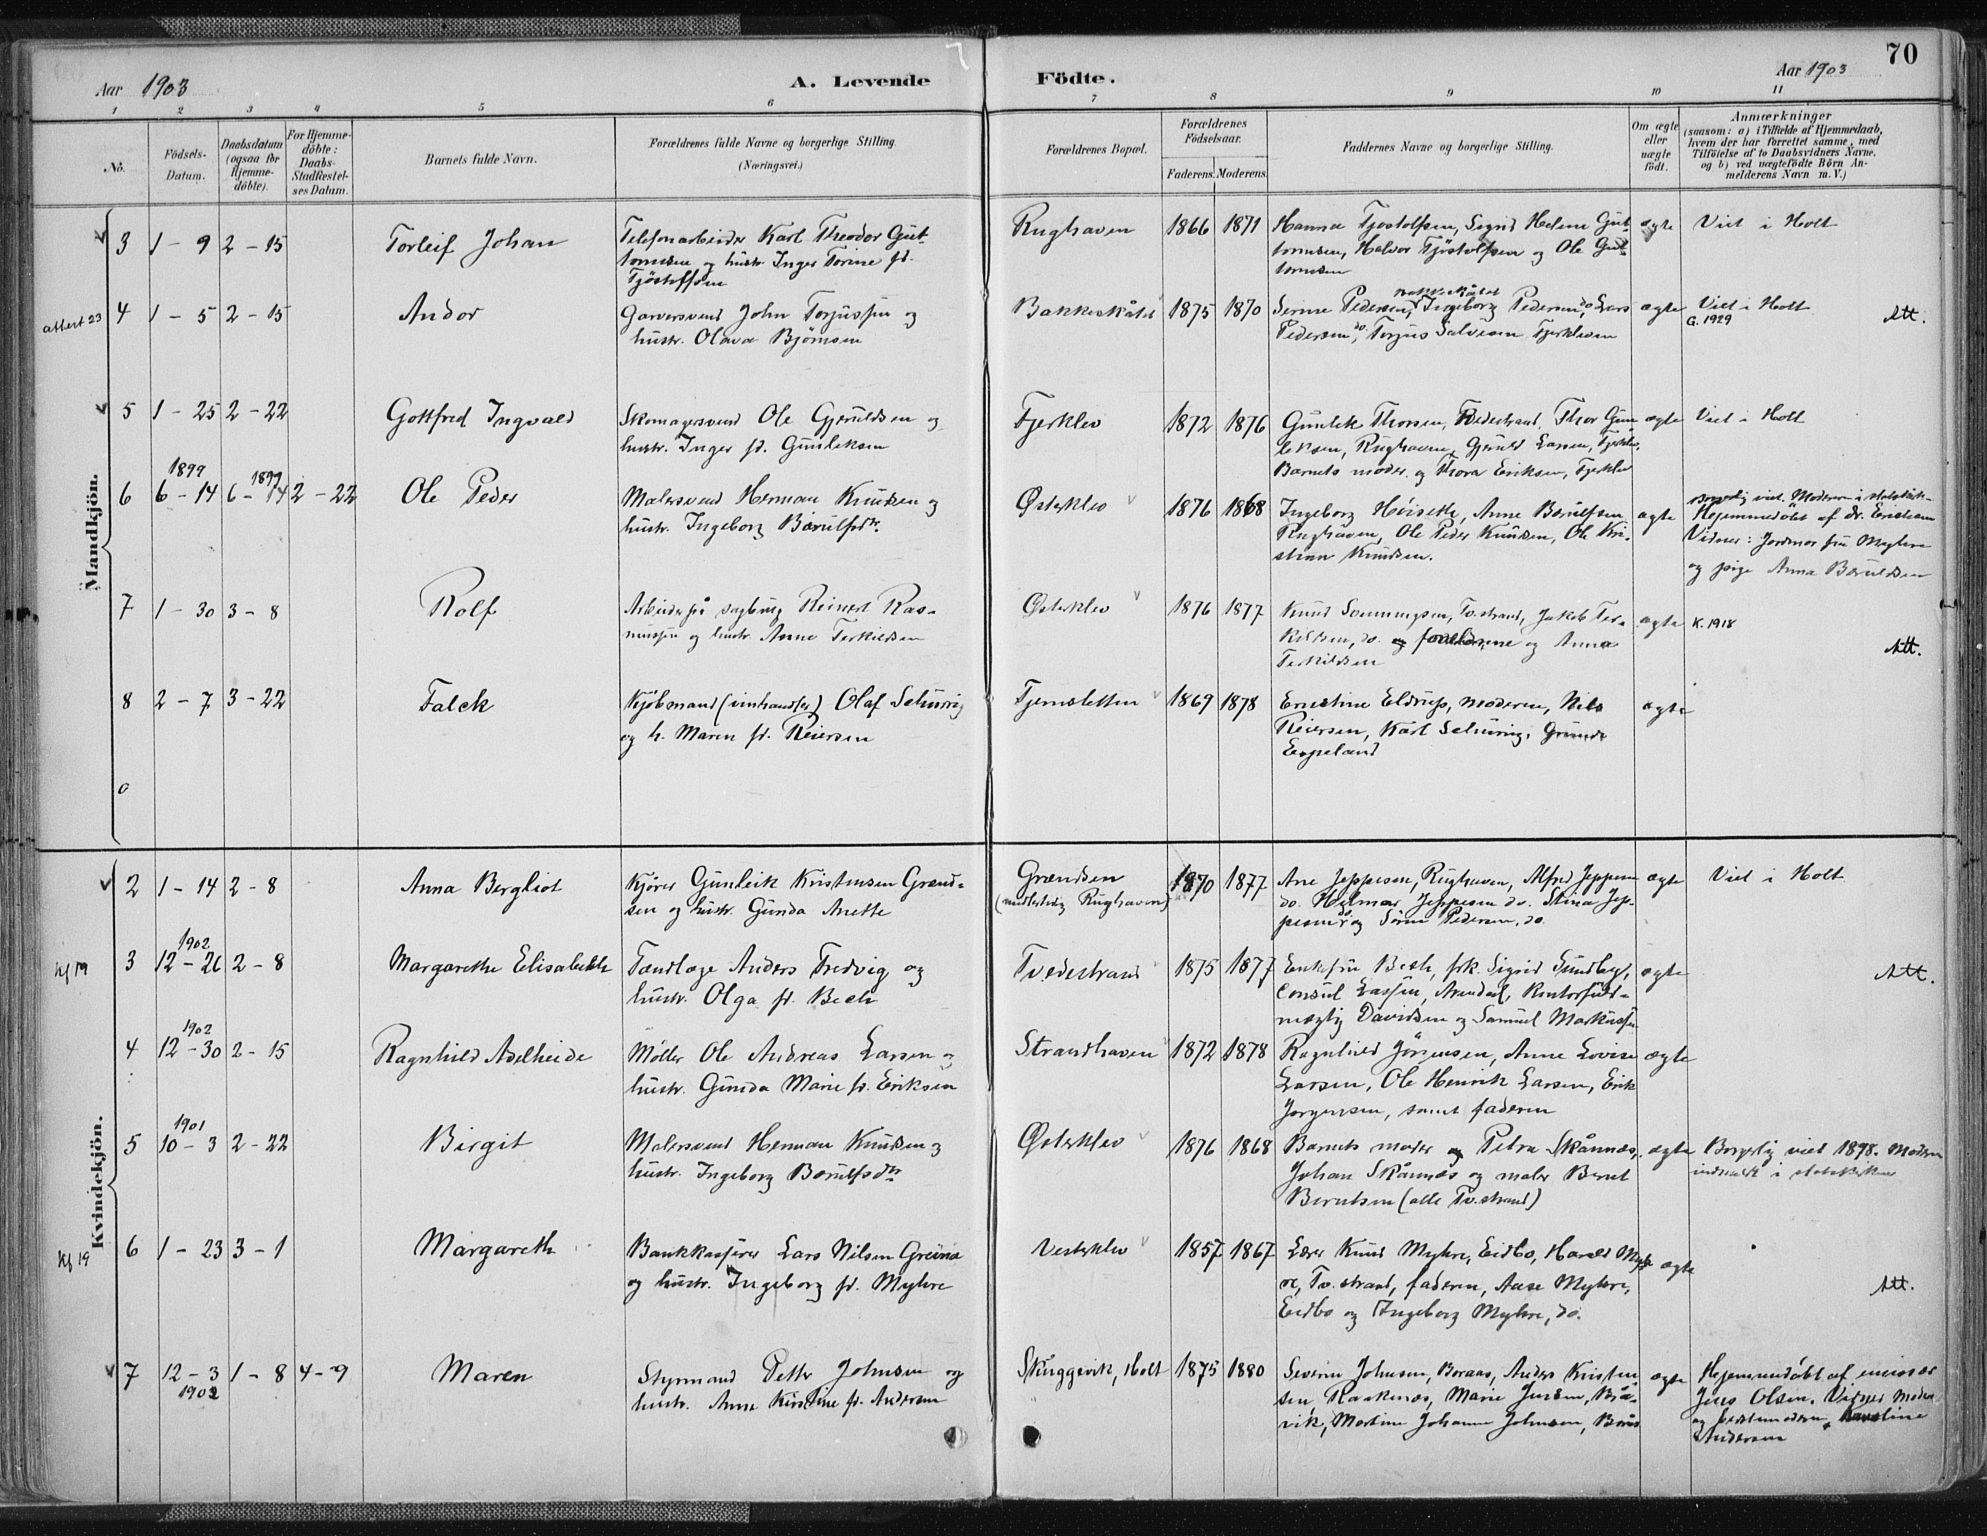 70
Aar 1903
A. Levende
Födte.
Aar 1903
1 2 3 4 5 6 7 8 9 10 11
No.
Födsels-
Datum.
Daabsdatum
(ogsaa for
Hjemme-
döbte).
For Hjemme-
döbte:
Daabs-
Stadfæstel-
ses Datum.
Barnets fulde Navn.
Forældrenes fulde Navne og borgerlige Stilling.
(Næringsvei.)
Forældrenes Bopæl.
Forældrenes
Födselsaar.
Faderens. Moderens.
Faddernes Navne og borgerlige Stilling.
Om ægte
eller
uægte
födt.
Anmærkninger
(saasom: a) i Tilfælde af Hjemmedaab,
hvem der har forrettet samme, med
Tilföielse af to Daabsvidners Navne,
og b) ved uægtefödte Börn An-
melderens Navn m. V.)
Mandkjön.
3 1 - 9 2 - 15 Torleif Johan
Telefonarbeider Karl Theodor Gut-
tormsen og hustr. Inger Torine f.
Tjøstolfsen
Rughaven 1866 1871
Hanna Tjøstolfsen, Sigrid Helene Gut-
tormsen, Halvor Tjøstolfsen og Ole Gut-
tormsen
ægte Viet i Holt
attest 23 4 1 - 5 2 - 15 Andor
Garversvend John Torjussen og
hustr. Olava Bjørnsen
Bakkeskåtet 1875 1870
Serine Pedersen, Ingeborg Pedersen, do Lars
Pedersen, do. Torjus Salvesen Fjerkleven
ægte Viet i Holt
G. 1929
Att.
5 1 - 25 2 - 22 Gottfred Ingvald
Skomagersvend Ole Gjeruldsen og
hustr. Inger f. Gunleksen
Fjerklev 1872 1876
Gunlek Thorsen, Tvedestrand, Thor Gun-
leksen, Rughaven, Gjeruld Larsen, Fjerklev,
Barnets moder og Thora Eriksen, Fjerklev
ægte Viet i Holt
1899 1899
6 6 - 14 6 - 14 2 - 22 Ole Peder
Malersvend Herman Knudsen og
hustr. Ingeborg Bærulfsdtr.
Østerklev 1876 1868
Ingeborg Høiseth, Anne Bærulfsen
Rughaven, Ole Peder Knudsen, Ole Kri-
stian Knudsen.
ægte
Borgerlig viet. Moderen i statskirk-
Hjemmedøbt af dr. Erichsen
Vidner: Jordmor fru Myhre
og pige Anna Bæruldsen
7 1 - 30 3 - 8 Rolf
Arbeider på sagbrug Reinert Ras-
mussen og hustr. Anne Terkildsen
Østerklev 1876 1877
Knud Sonmungsen, Tv.strand, Jakob Ter-
kildsen, do. og forældrene og Anna
Terkildsen
ægte K. 1918
Att.
8 2 - 7 3 - 22 Falck
Kjøbmand (vinhandler) Olaf Schürrig
og h. Maren f. Reiersen
Tjernsletten 1869 1878
Ernestine Eldrup, moderen, Nils
Reiersen, Karl Schürrig, Grunde
Espeland
ægte
0
Kvindekjön.
2 1 - 14 2 - 8 Anna Bergliot
Kjører Gunleik Kristensen Grænd-
sen og hustr. Gunda Anette
Grændsen
(midlertidig Rughaven)
1870 1877
Ane Jeppesen, Rughaven, Alfred Jeppesen
do. Hjelmar Jeppesen do. Stina Jep-
pesen do og Søren Pedersen, do.
ægte Viet i Holt
1902
kf 19 3 12 - 26 2 - 8 Margarethe Elisabeth
Tandlæge Anders Fredvig og
hustr. Olga f. Bech
Tvedestrand 1875 1877
Enkefru Bech, frk. Sigrid Sundbye,
Consul Lassen, Arendal, Kontorfuld-
mægtig Davidsen og Samuel Markussen
ægte
Att.
1902
4 12 - 30 2 - 15 Ragnhild Adelheide
Møller Ole Andreas Larsen og
hustr. Gunda Marie f. Eriksen
Strandhaven 1872 1878
Ragnhild Jørgensen, Anne Lovise
Larsen, Ole Henrik Larsen, Erik
Jørgensen, samt faderen
ægte
1901
5 10 - 3 2 - 22 Birgit
Malersvend Herman Knudsen og
hustr. Ingeborg Børulfsdtr
Østerklev 1876 1868
Barnets moder og Petra Skånnæs,
Johan Skånnæs og maler Bernt
Berntsen (alle Tv.strand)
ægte
Borgerlig viet 1898. Moderen
indmeldt i statskirken
kf 19 6 1 - 23 3 - 1 Margareth
Bankkasserer Lars Nilsen Greina
og hustr. Ingeborg f. Myhre
Vesterklev 1857 1867
Lærer Knud Myhre, Eidbo, Harald Myh-
re, Tv.strand, faderen, Aase Myhre,
Eidbo og Ingeborg Myhre, do.
ægte
Att.
7 12 - 3 1 - 8 4 - 9 Maren
1902
Styrmand Petter Johnsen og
hustr. Anne Kirstine f. Andersen
Skuggevik, Holt 1875 1880
Severin Johnsen, Boraas, Anders Kristen-
sen, Raaknæs, Marie Jensen, Blå-
vik, Martine Johanne Johnsen, Borås
ægte
Hjemmedøbt af emissær
Jens Olsen. Vidner Moderen
og bestemoderen Karoline
Andersen